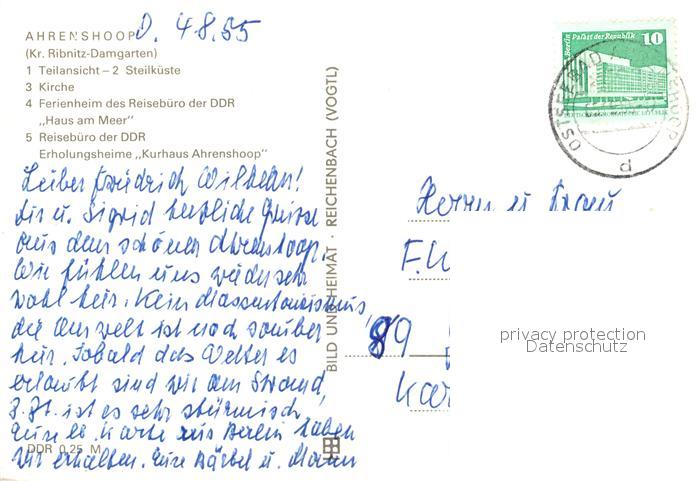 AHRENSHOOP D. 4.8.85
(Kr. Ribnitz-Damgarten)
1 Teilansicht – 2 Steilküste
3 Kirche
4 Ferienheim des Reisebüro der DDR
„Haus am Meer”
5 Reisebüro der DDR
Erholungsheime „Kurhaus Ahrenshoop”
Lieber Friedrich Wilhelm!
Dir u. Sigrid herzliche Grüsse
aus dem schönen Ahrenshoop.
Wir fühlen uns wieder sehr
wohl hier. Kein Massentourismus,
die Umwelt ist noch sauber
hier. Sobald das Wetter es
erlaubt sind wir am Strand,
z.Zt. ist es sehr stürmisch,
Eure lb. Karte aus Berlin haben
wir erhalten. Eure Bärbel u.
DDR 0,25 M
BILD UND HEIMAT · REICHENBACH (VOGTL)
Palast der Republik
10
OSTSEEBAD
d
Herrn u Frau
F.W
89
Kar
privacy protection
Datenschutz